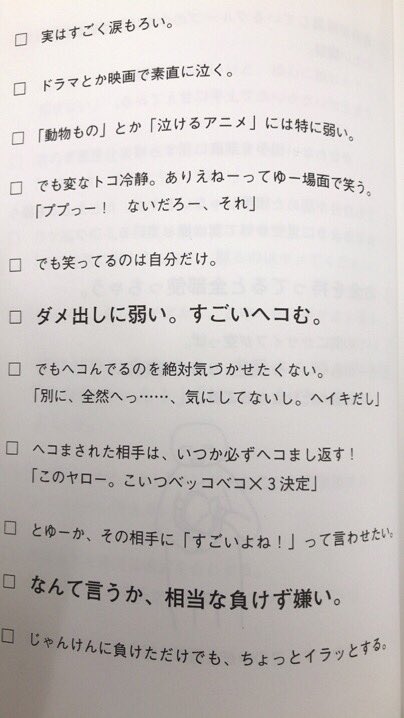 □ 実はすごく涙もろい。
□ ドラマとか映画で素直に泣く。
□ 「動物もの」とか「泣けるアニメ」には特に弱い。
□ でも変なトコ冷静。ありえねーってゆー場面で笑う。
「ププっー！　ないだろー、それ」
□ でも笑ってるのは自分だけ。
□ ダメ出しに弱い。すごいヘコむ。
□ でもヘコんでるのを絶対気づかせたくない。
「別に、全然へっ……、気にしてないし。ヘイキだし」
□ ヘコまされた相手は、いつか必ずヘコまし返す！
「このヤロー。こいつベッコベコ×３決定」
□ とゆーか、その相手に「すごいよね！」って言わせたい。
□ なんて言うか、相当な負けず嫌い。
□ じゃんけんに負けただけでも、ちょっとイラッとする。